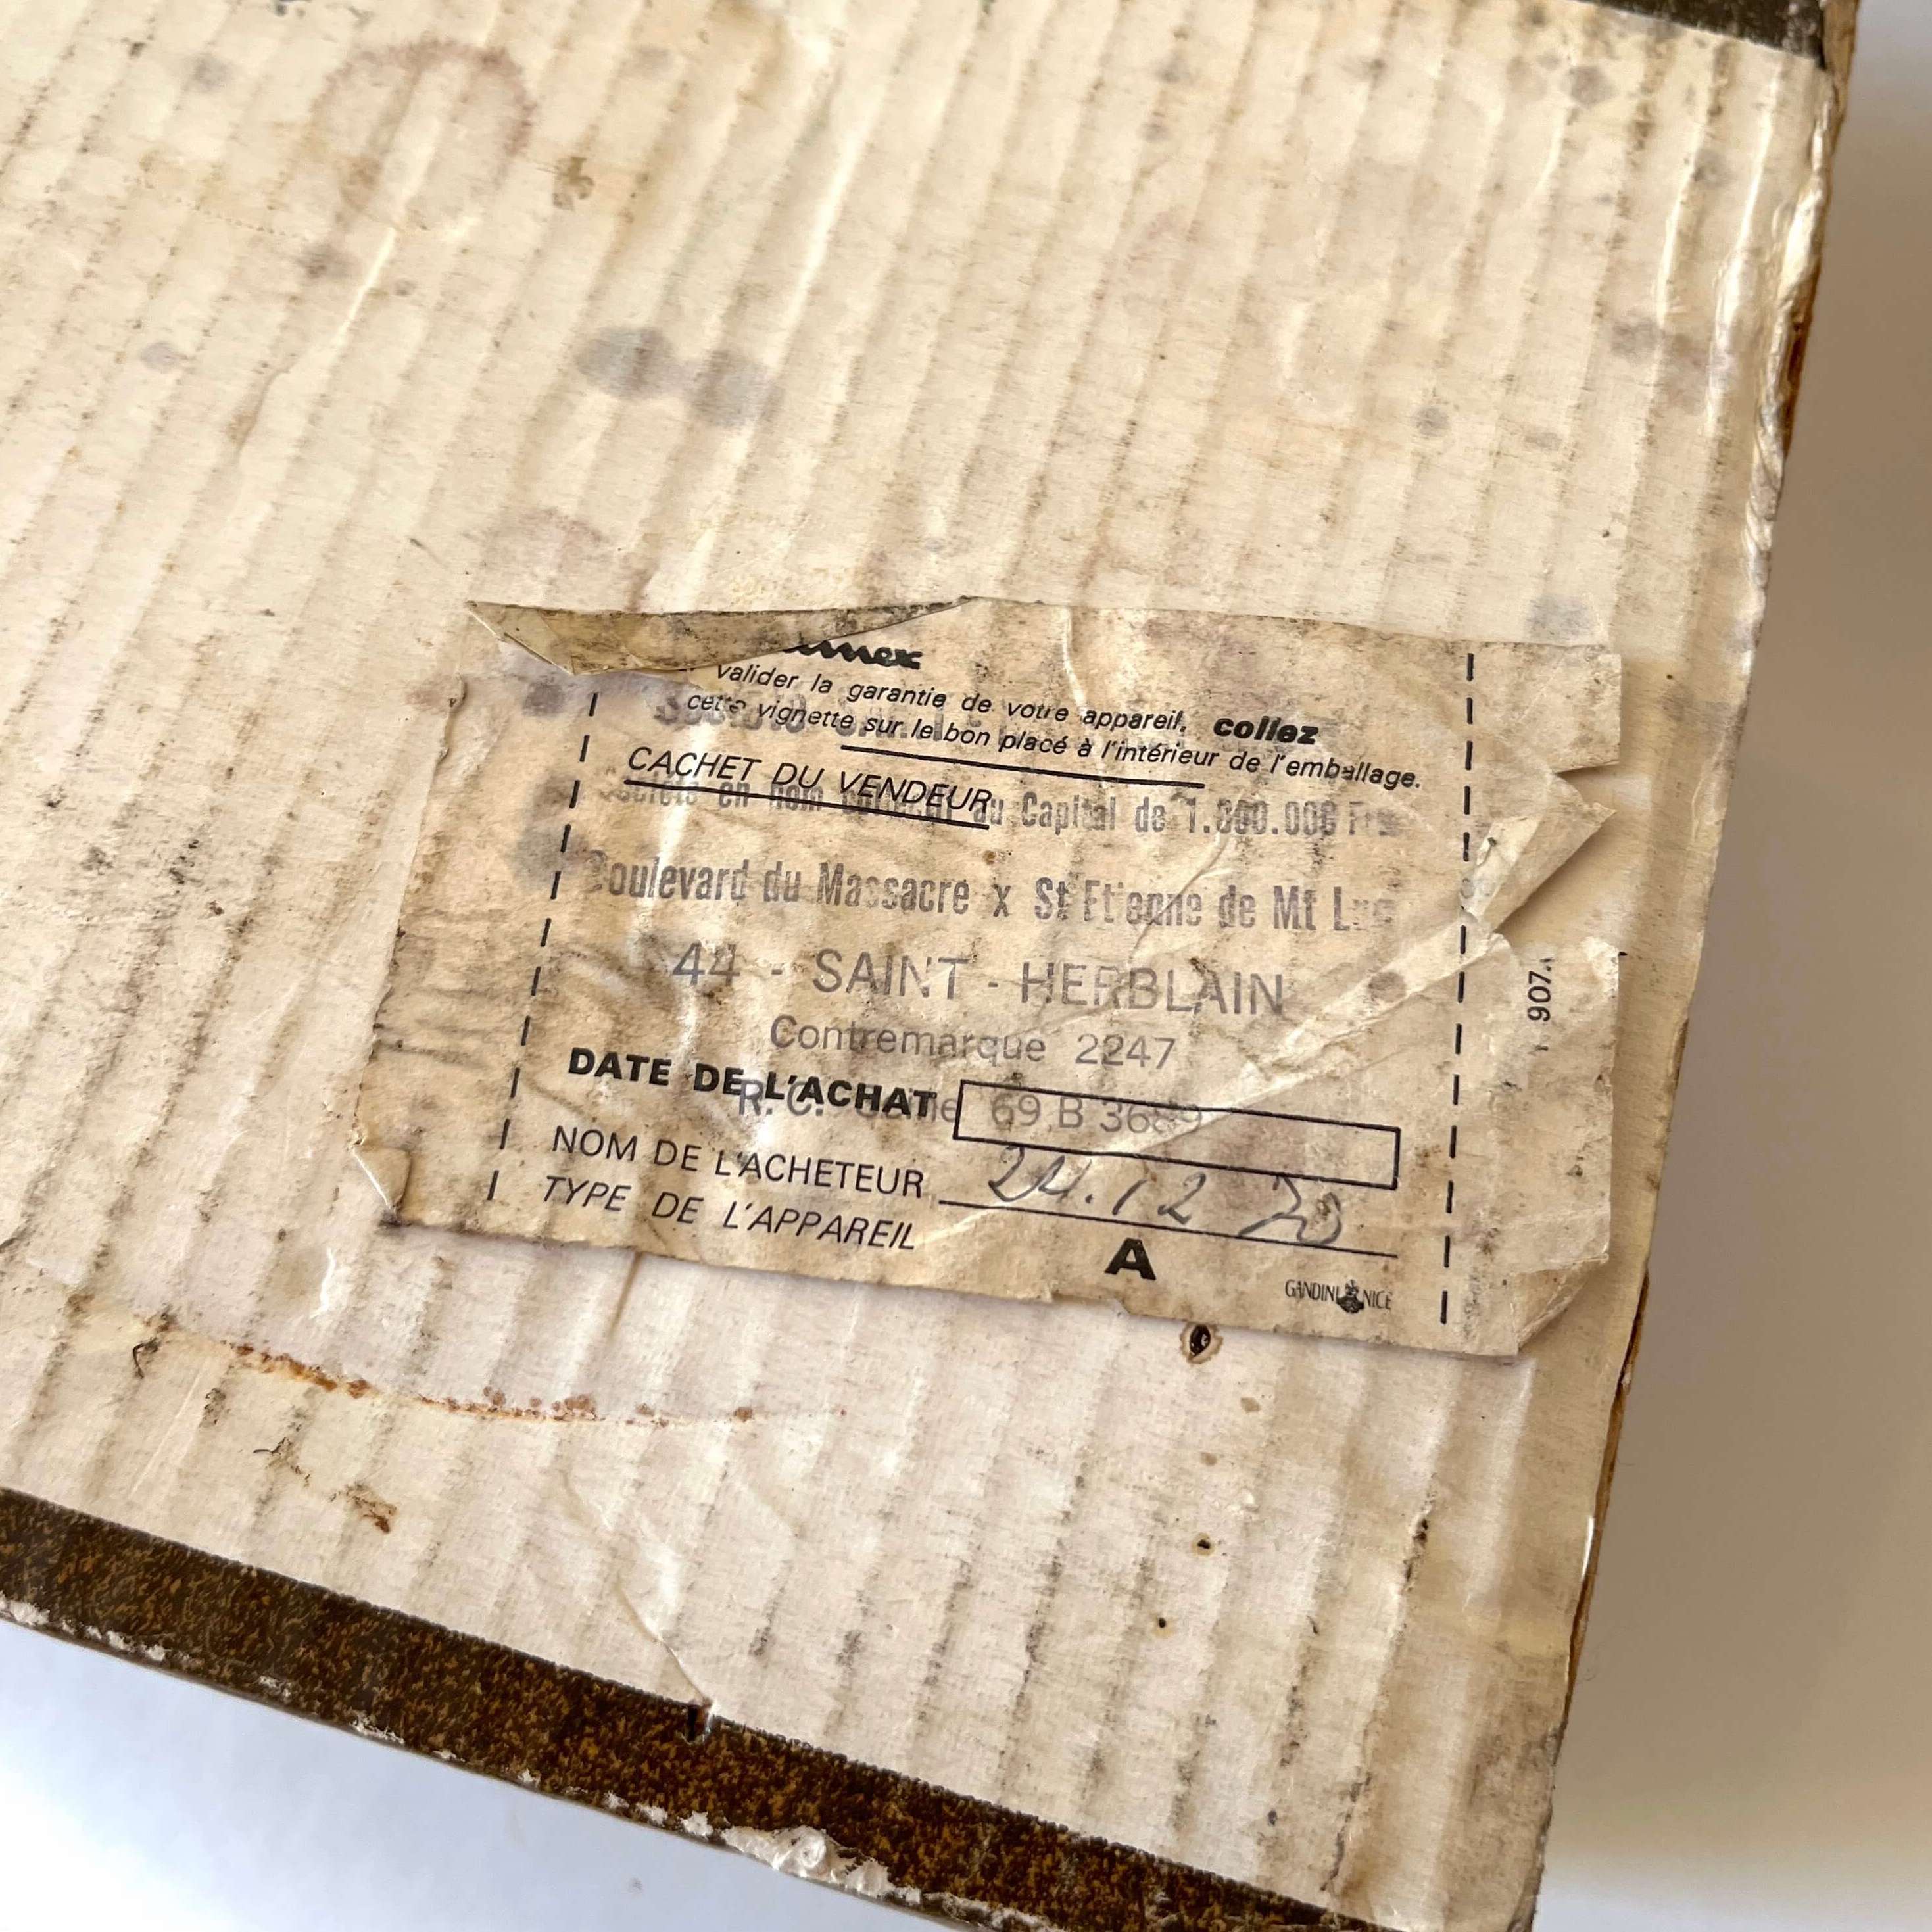 valider la garantie de votre appareil, collez
cette vignette sur le bon placé à l'intérieur de l'emballage.
CACHET DU VENDEUR
Société en nom au Capital de 1.000.000
Boulevard du Massacre x St Etienne de Mt Luc
44 - SAINT - HERBLAIN
Contremarque 2247
DATE DE L'ACHAT
R. C. 69 B 3689
NOM DE L'ACHETEUR 24.12 70
TYPE DE L'APPAREIL
A
GANDINI NICE
907.